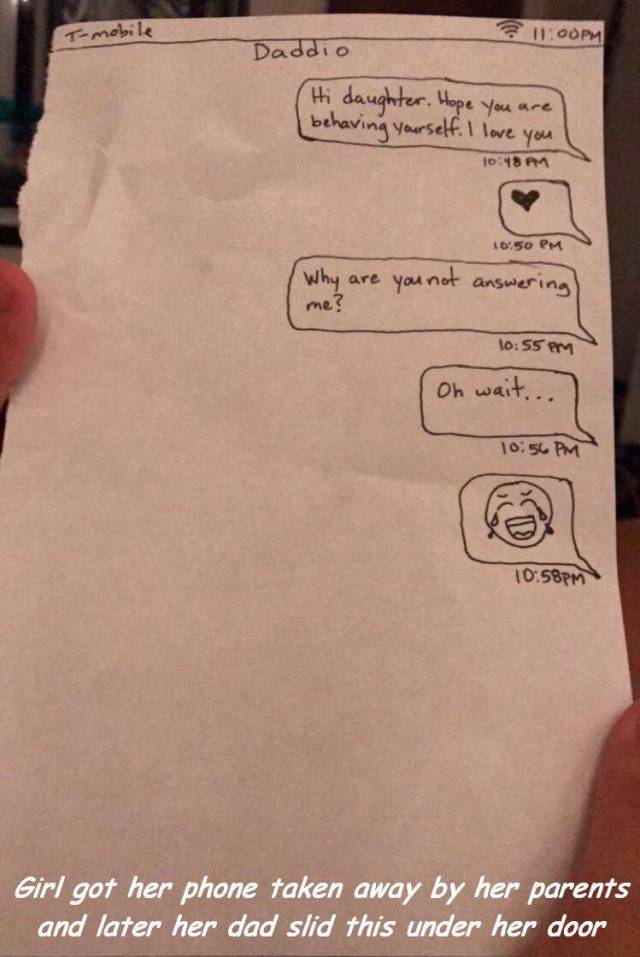 T-mobile 11:00PM
Daddio
Hi daughter. Hope you are
behaving yourself. I love you
10:48 PM
10:50 PM
Why are you not answering
me?
10:55 PM
Oh wait...
10:56 PM
10:58PM
Girl got her phone taken away by her parents
and later her dad slid this under her door